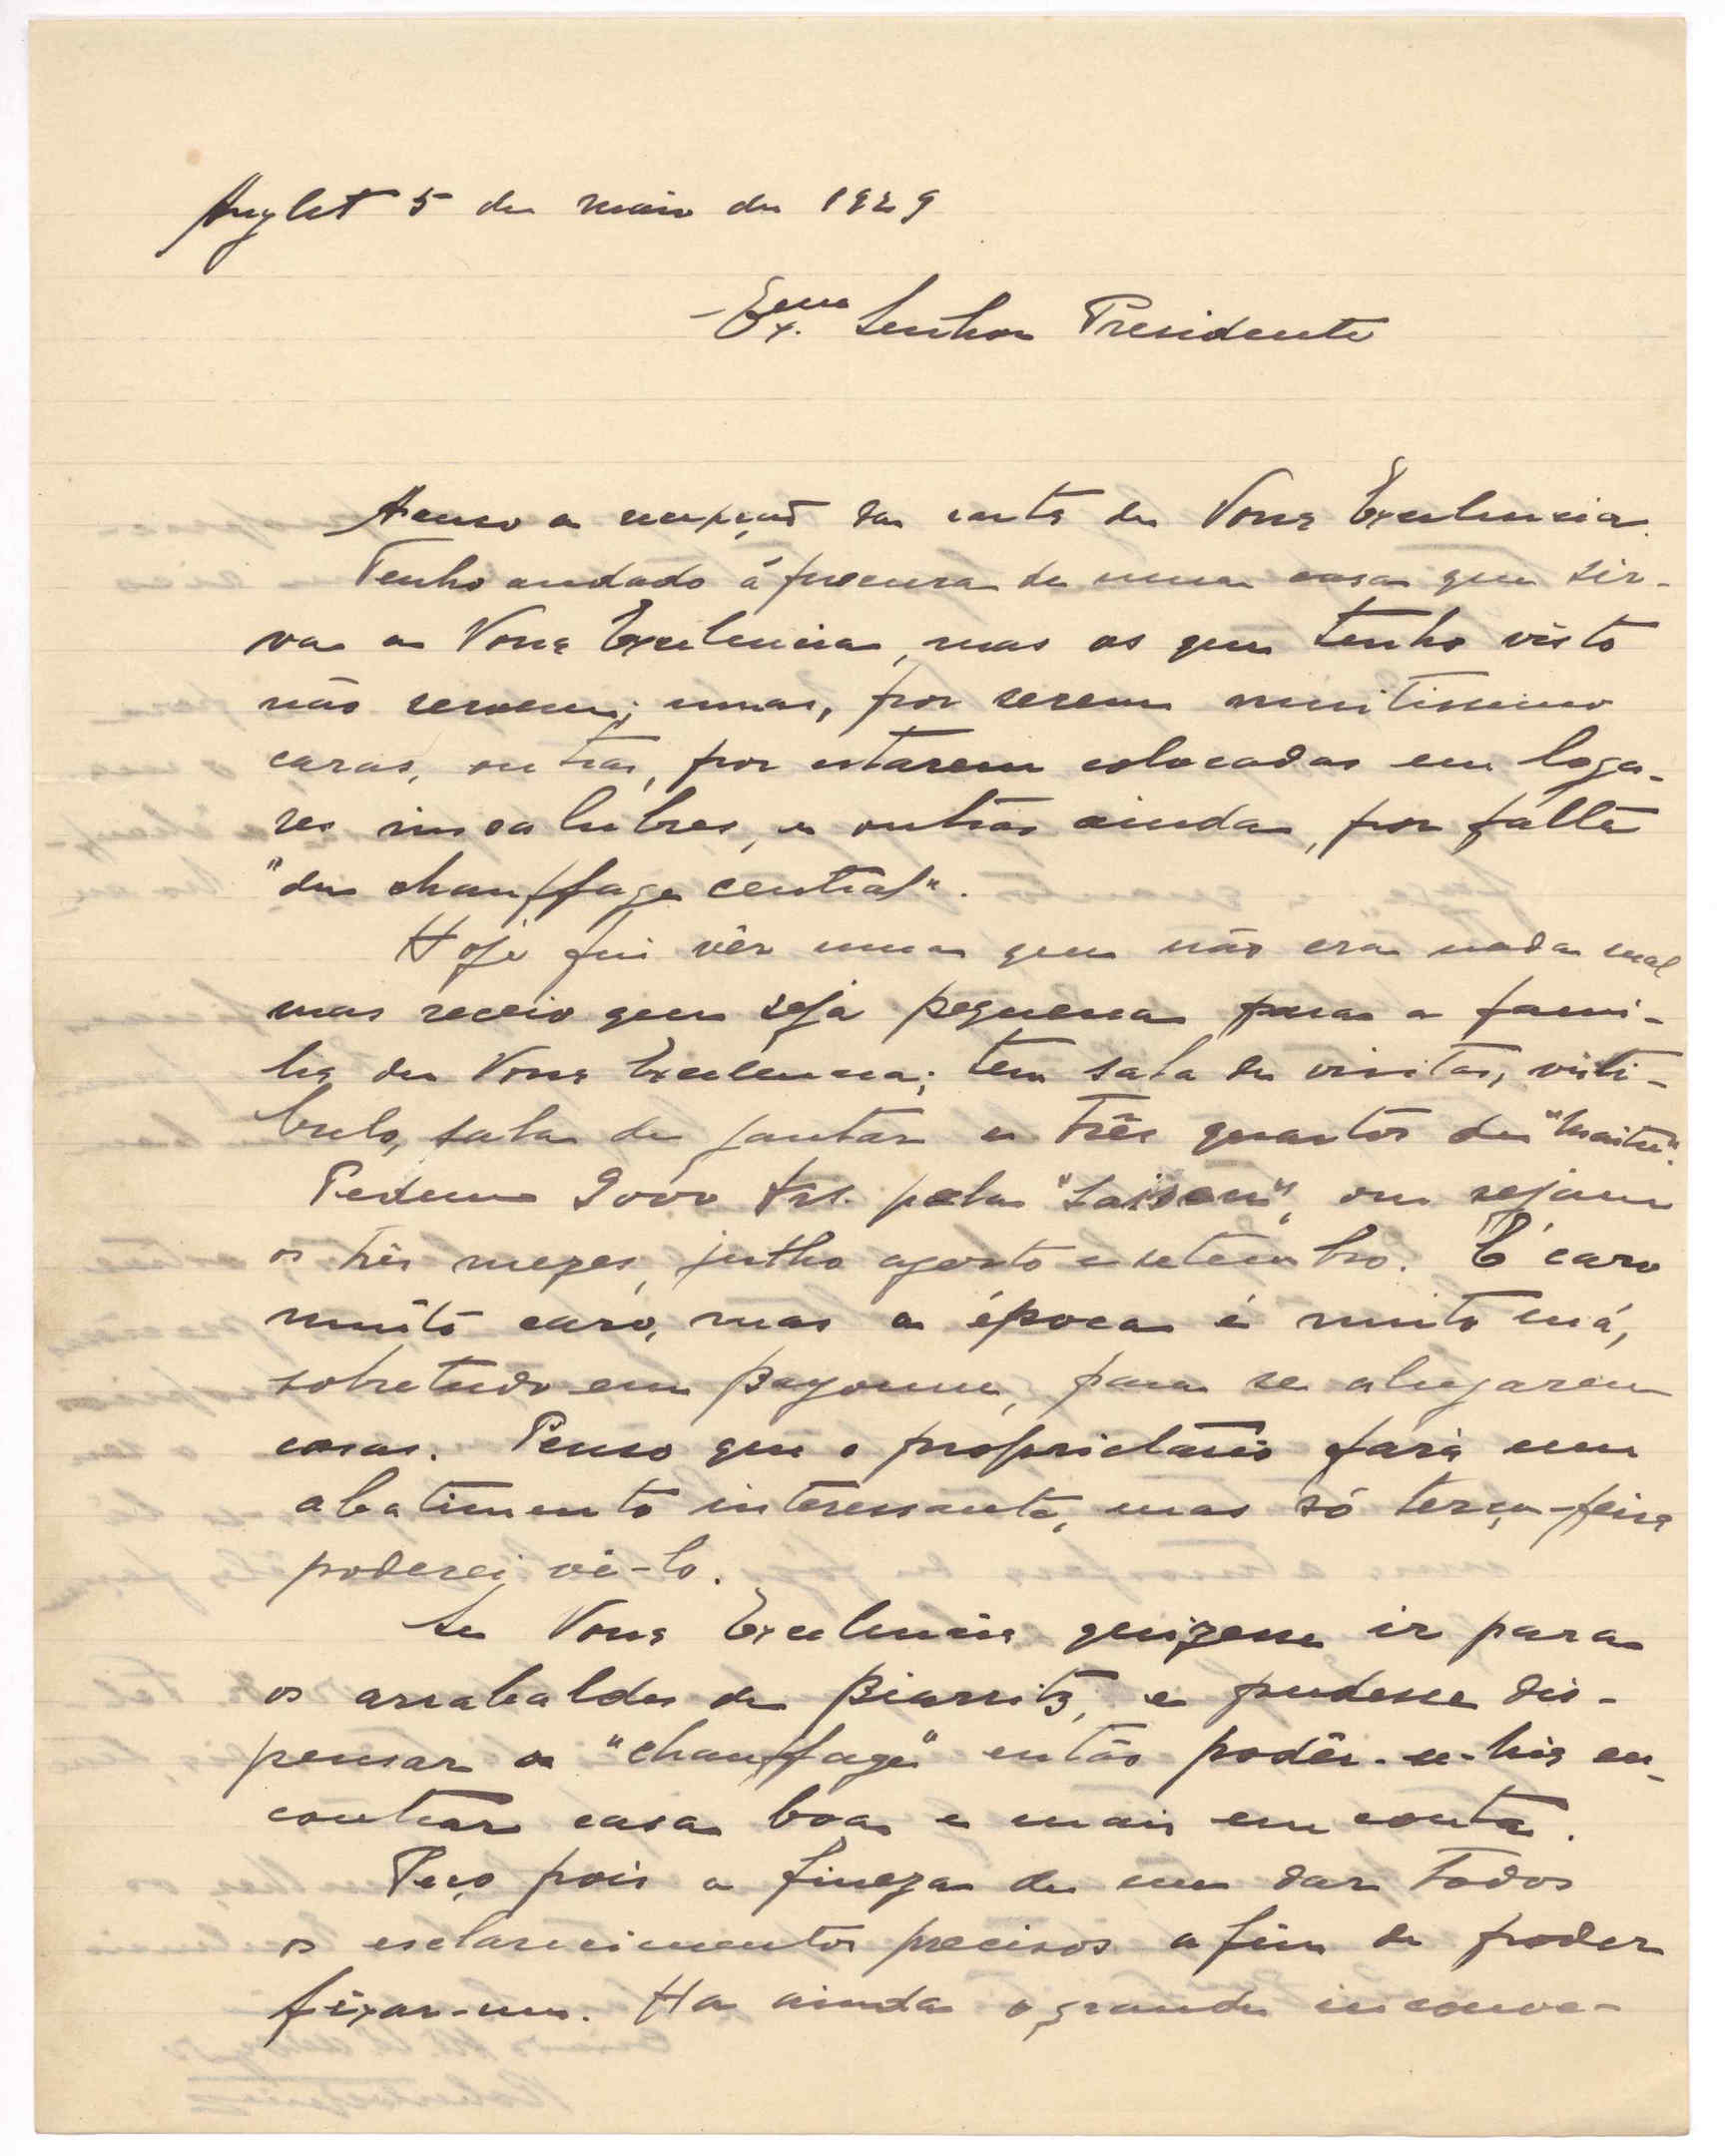 Anglet 5 de maio de 1929
Exmo. Senhor Presidente
Acuso a recepção da carta de Vossa Excelencia.
Tenho andado á procura de uma casa que sir-
va a Vossa Excelencia, mas as que tenho visto
não servem; umas, por serem muitissimo
caras, outras, por estarem colocadas em loga-
res insalubres, e outras ainda, por falta
"de chauffage central".
Hoje fui vêr uma que não era nada mal
mas receio que seja pequena para a fami-
lia de Vossa Excelencia; tem sala de visitas, vesti-
bulo, sala de jantar e três quartos de "maitre".
Pedem 9000 frs. pela "saison", ou sejam
os três mezes, julho agosto e setembro. É caro
muito caro, mas a época é muito má,
sobretudo em Bayonne, para se alugarem
casas. Penso que o proprietário fará um
abatimento interessante, mas só terça-feira
poderei vê-lo.
Se Vossa Excelencia quizesse ir para
os arrabaldes de Biarritz, e pudesse dis-
pensar a "chauffage" então podêr-se-hia en-
contrar casa boa e mais em conta.
Peço pois a fineza de me dar todos
os esclarecimentos precisos afim de poder
fixar-me. Ha ainda o grande inconve-